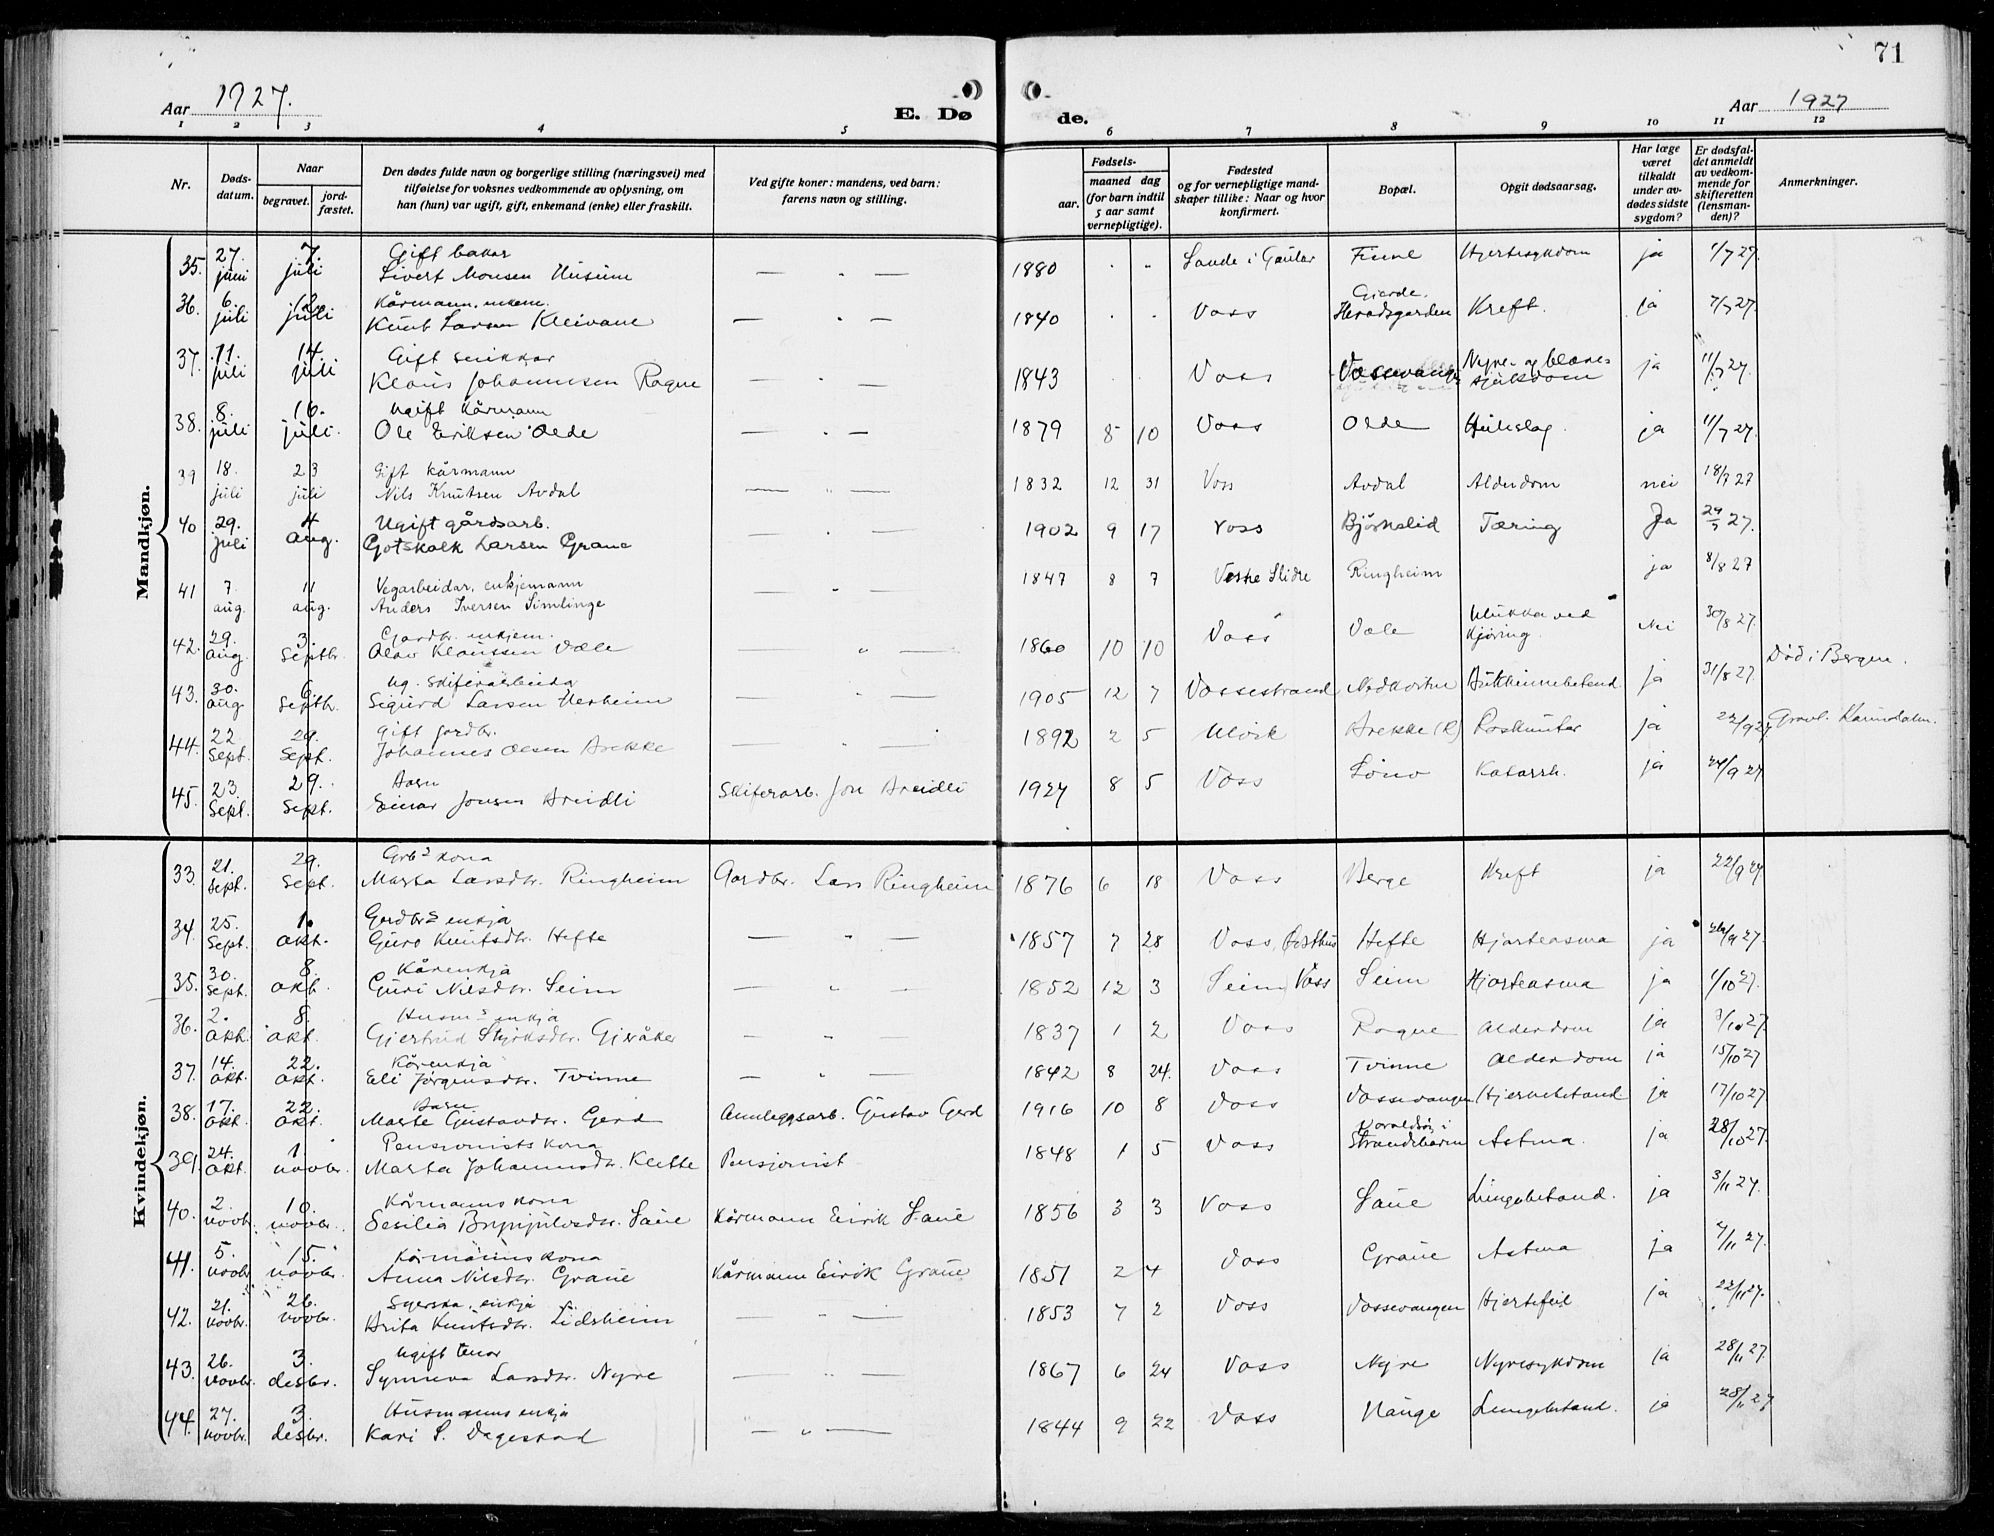 71
Aar 1927.
E. Døde.
Aar 1927
1 2 3 4 5 6 7 8 9 10 11 12
Nr.
Døds-
datum.
Naar
begravet.
jord-
fæstet.
Den dødes fulde navn og borgerlige stilling (næringsvei) med
tilføielse for voksnes vedkommende av oplysning, om
han (hun) var ugift, gift, enkemand (enke) eller fraskilt.
Ved gifte koner: mandens, ved barn:
farens navn og stilling.
Fødsels-
aar.
maaned dag
(for barn indtil
5 aar samt
vernepligtige).
Fødested
og for vernepligtige mand-
skaper tillike: Naar og hvor
konfirmert.
Bopæl.
Opgit dødsaarsag.
Har læge
været
tilkaldt
under av-
dødes sidste
sygdom?
Er dødsfal-
det anmeldt
av vedkom-
mende for
skifteretten
(lensman-
den)?
Anmerkninger.
Mandkjøn.
35. 27. juni 7. juli Gift bakar Sivert Monsen Husum — „ — 1880 . „ Sande i Gaular Finne Hjertesykdom ja 1/7 27.
36. 6. juli 12. juli Kårmann, enkem. Knut Larsen Kleivane — „ — 1840 . . Voss Gjerde, Heradsgarden Kreft. ja 7/7 27.
37. 11. juli 14. juli Gift snikkar Klaus Johannesen Rogne — „ — 1843 . . Voss Vossevangen Nyre- og blære- sjukdom ja 11/7 27.
38. 8. juli 16. juli. Ugift Kårmann Ole Eriksen Olde — „ — 1879 8 10 Voss Olde ja 11/7 27.
39 18. juli 23 juli Gift kårmann Nils Knutsen Avdal — „ — 1832 12 31 Voss Avdal Alderdom nei 18/7 27
40 29. juli 4 aug. Ugift gårdsarb. Gotskalk Larsen Graue — „ — 1902 9 17 Voss Bjørkelid Tæring Ja 29/7 27.
41 7. aug. 11 aug. Vegarbeidar, enkjemann Anders Iversen Simlinge — „ — 1847 8 7 Vestre Slidre Ringheim ja 8/8 27
42. 29. aug. 3. Septbr. Gardbr. enkjem. Olav Klaussen Væle — „ — 1860 10 10 Voss Væle Ulukka ved kjøring. Nei 30/8 27.
43. 30. aug 6. Septbr. Ug. skiferarbeidar Sigurd Larsen Ucsheim — „ — 1905 12 7 Vossestrand ja 31/8 27. Død i Bergen.
44. 22. Sept. 29. Sept. Gift jordbr. Johannes Olsen Brekke — „ — 1892 2 5 Ulvik Brekke ja 22/9 27
45. 23. Sept. 29. Sept. Barn Einar Jonsen Breidli Skiferarb. Jon Breidli 1927 8 5 Voss Lóno Katarrh. ja 24/9 27
Kvindekjøn.
33. 21. Sept. 29. Sept. Grbs kona Marta Larsdtr. Ringheim Gardbr. Lars Ringheim 1876 6 18 Voss Berge Kreft ja 22/9 27
34. 25. Sept. 1. okt. Gardbrs enkja Guro Knutsdtr. Hefte — „ — 1857 7 28 Voss, Østhus Hefte Hjarteasma ja 26/9 27.
35. 30. Sept. 8. okt. Kårenkja Guri Nilsdtr. Seim — „ — 1852 12 3 Seim Voss Seim Hjarteasma ja 1/10 27.
36. 2. okt. 8. okt. Husms enkja Gjertrud Styrksdtr. Gjeråker — „ — 1837 1 2 Voss Rogne Alderdom ja 3/10 27
37. 14. okt. 22. okt. Kårenkja Eli Jørgensdtr. Tvinne — „ — 1842 8 24. Voss Tvinne Alderdom ja 15/10 27
38. 17. okt. 22. okt. Barn Marta Gustavdtr. Gerd Annleggsarb. Gustav Gerd 1916 10 8 Voss Vossevangen Hjernebetand ja 17/10 27
39. 24. okt. 1. novbr. Pensionists kona Marta Johannesdtr. Klette Pensjonist 1848 1 5 Voss Varaldsøi, i Strandebarm Astma. ja 28/10 27.
40. 2. novbr. 10. novbr. Kårmanns kona Sesilia Brynjulvsdtr. Saue Kårmann Eirik Saue 1856 3 3 Voss Saue Lungebetand. ja 3/11 27.
41. 5. novbr. 15. novbr. Kårmanns kona Anna Nilsdtr. Graue Kårmann Eirik Graue 1851 2 4 Voss Graue Astma ja 7/11 27.
42. 21. novbr. 26. novbr. Syerska, enkja Brita Knutsdtr. Lidsheim — „ — 1853 7 2 Voss Vossevangen Hjertefeil ja 22/11 27.
43. 26. novbr. 3. desbr. Ugift tenar Synneva Larsdtr. Nyre — „ — 1867 6 24 Voss Nyre Nyresykdom ja 28/11 27.
44. 27. novbr. 3. desbr. Husmanns enkja Kari S. Dagestad — „ — 1844 9 22 Voss Hauge Lungebetand. ja 28/11 27